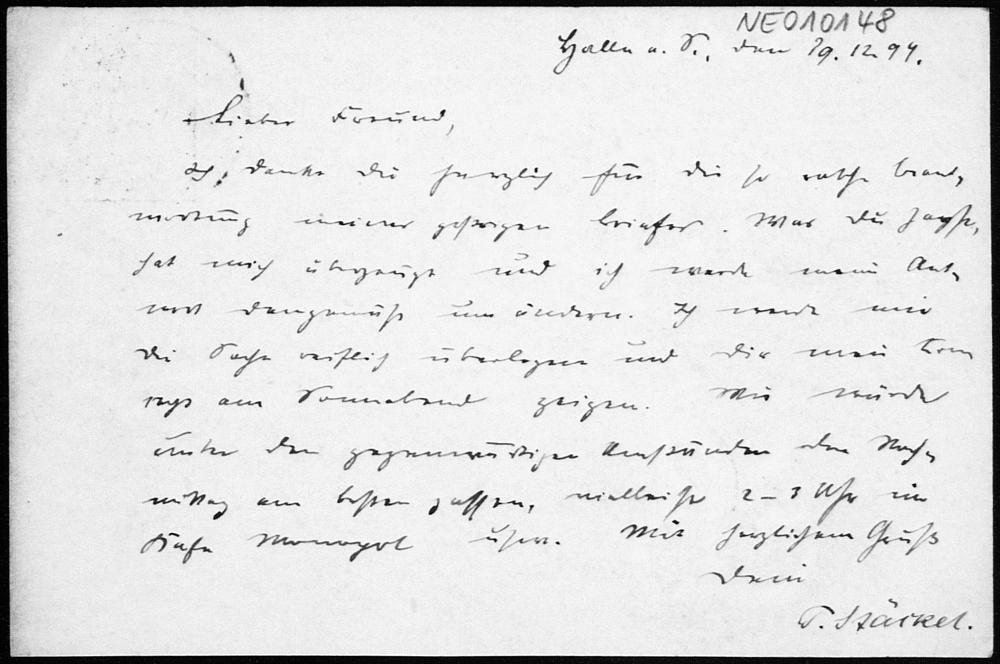 NE010148
Halle a. S., den 19.12.94.
Lieber Freund,
Ich danke Dir herzlich für die so rasche Beant-
wortung meines gestrigen Briefes. Was Du sagst,
hat mich überzeugt und ich werde meine Ant-
wort demgemäß um ändern. Ich werde mir
die Sache reiflich überlegen und Dir mein
am Sonnabend zeigen. Mir würde
unter den gegenwärtigen Umständen der Nach-
mittag am besten passen, vielleicht 2–3 Uhr im
Kafe Monopol usw. Mit herzlichem Gruß
Dein
P. Stäckel.